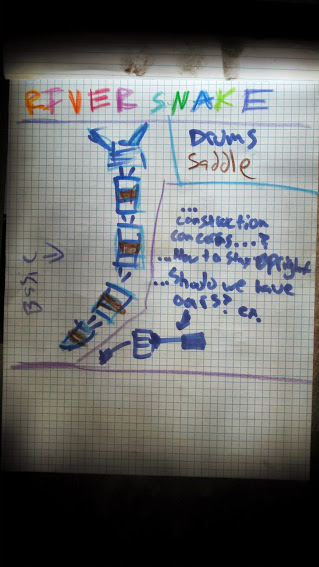 RIVER SNAKE
Drums
Saddle
...
construction
concerns...?
...How to stay upright
...Should we have
oars?
ex.
BASIC